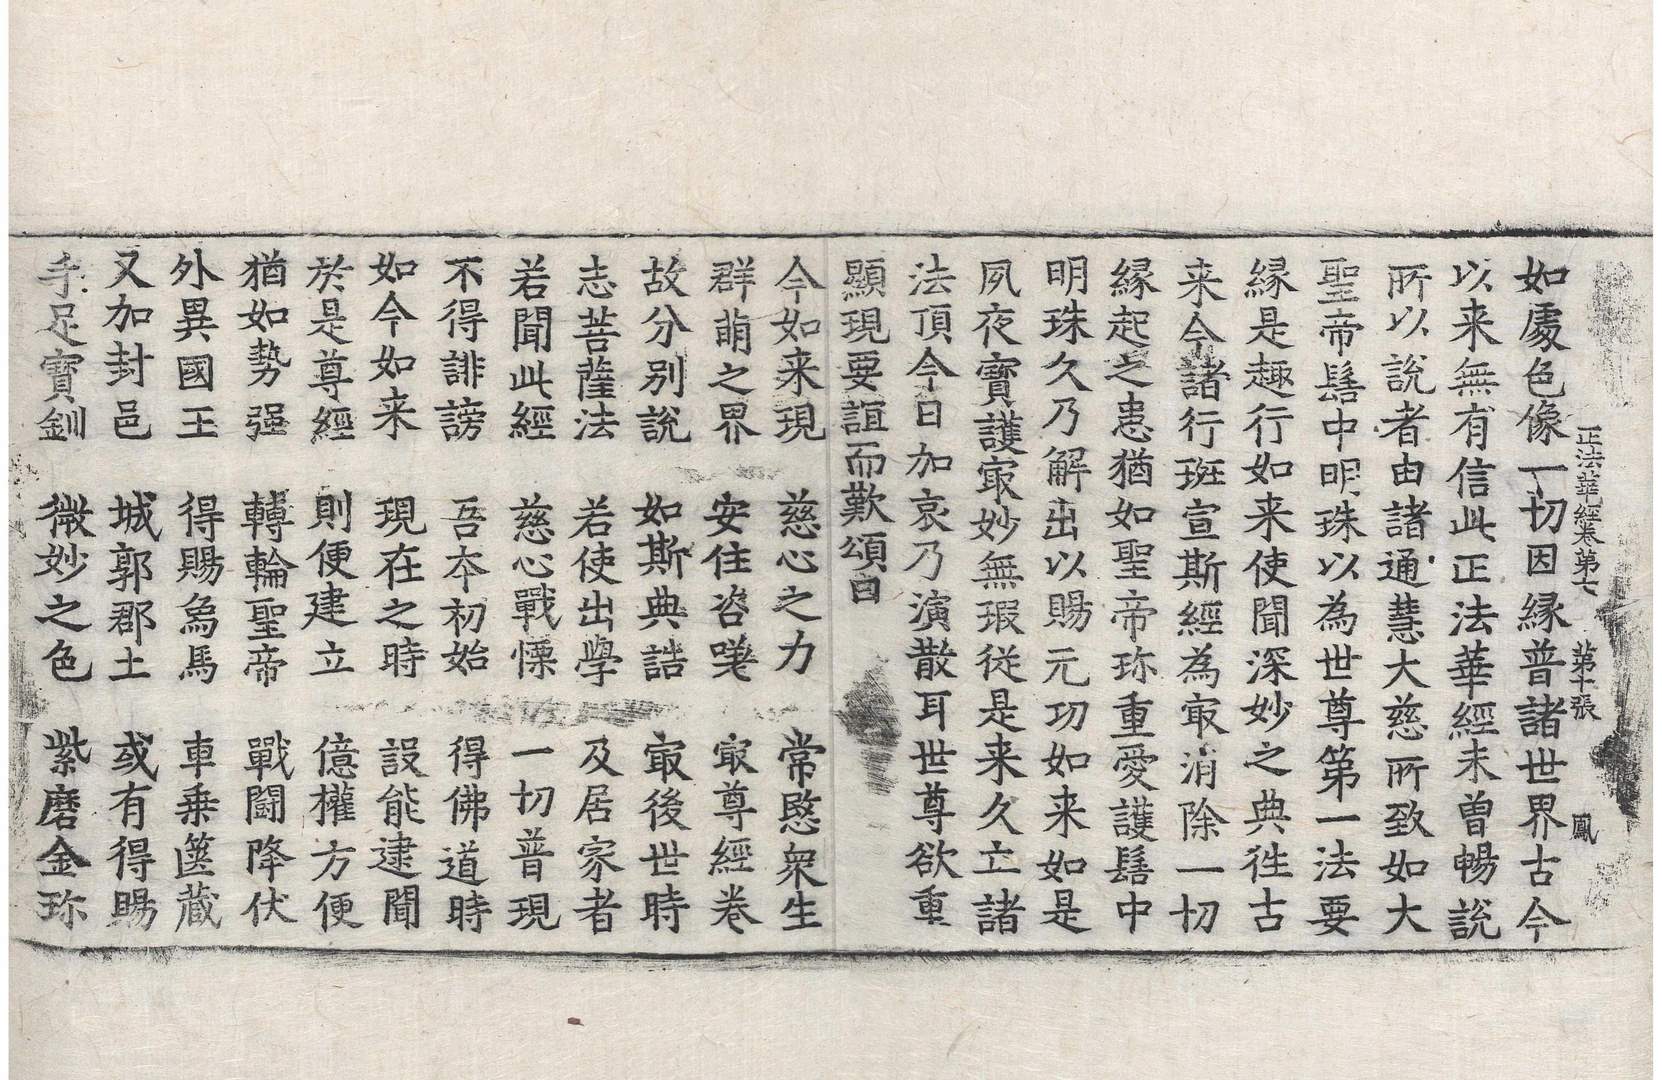 正法華経卷第七 第十張 鳳
如處色像一切因緣普諸世界古今
以来無有信此正法華經未曾暢說
所以說者由諸通慧大慈所致如大
聖帝髻中明珠以為世尊第一法要
緣是趣行如来使聞深妙之典徃古
来今諸行班宣斯經為㝡消除一切
緣起之患猶如聖帝珎重愛護髻中
明珠久乃解出以賜元功如来如是
夙夜寶護㝡妙無瑕從是来久立諸
法頂今日加哀乃演散耳世尊欲重
顯現要誼而歎頌曰
今如来現 慈心之力 常愍衆生
群萌之界 安住咨嗟 㝡尊經卷
故分别說 如斯典誥 㝡後世時
志菩薩法 若使出學 及居家者
若聞此經 慈心戰慄 一切普現
不得誹謗 吾夲初始 得佛道時
如今如来 現在之時 設能逮聞
於是尊經 則便建立 億權方便
猶如勢强 轉輪聖帝 戰鬪降伏
外異國王 得賜為馬 車乗篋藏
又加封邑 城郭郡土 或有得賜
手足寶釧 微妙之色 紫磨金珎